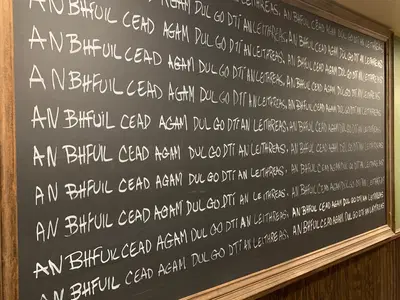 AN BHFUIL CEAD AGAM DUL GO DTÍ AN LEITHREAS, AN BHFUIL CEAD AGAM DUL GO DTÍ AN LEITHREAS,
AN BHFUIL CEAD AGAM DUL GO DTÍ AN LEITHREAS, AN BHFUIL CEAD AGAM DUL GO DTÍ AN LEITHREAS,
AN BHFUIL CEAD AGAM DUL GO DTÍ AN LEITHREAS, AN BHFUIL CEAD AGAM DUL GO DTÍ AN LEITHREAS,
AN BHFUIL CEAD AGAM DUL GO DTÍ AN LEITHREAS, AN BHFUIL CEAD AGAM DUL GO DTÍ AN LEITHREAS,
AN BHFUIL CEAD AGAM DUL GO DTÍ AN LEITHREAS, AN BHFUIL CEAD AGAM DUL GO DTÍ AN LEITHREAS,
AN BHFUIL CEAD AGAM DUL GO DTÍ AN LEITHREAS, AN BHFUIL CEAD AGAM DUL GO DTÍ AN LEITHREAS,
AN BHFUIL CEAD AGAM DUL GO DTÍ AN LEITHREAS, AN BHFUIL CEAD AGAM DUL GO DTÍ AN LEITHREAS,
AN BHFUIL CEAD AGAM DUL GO DTÍ AN LEITHREAS, AN BHFUIL CEAD AGAM DUL GO DTÍ AN LEITHREAS,
AN BHFUIL CEAD AGAM DUL GO DTÍ AN LEITHREAS, AN BHFUIL CEAD AGAM DUL GO DTÍ AN LEITHREAS.